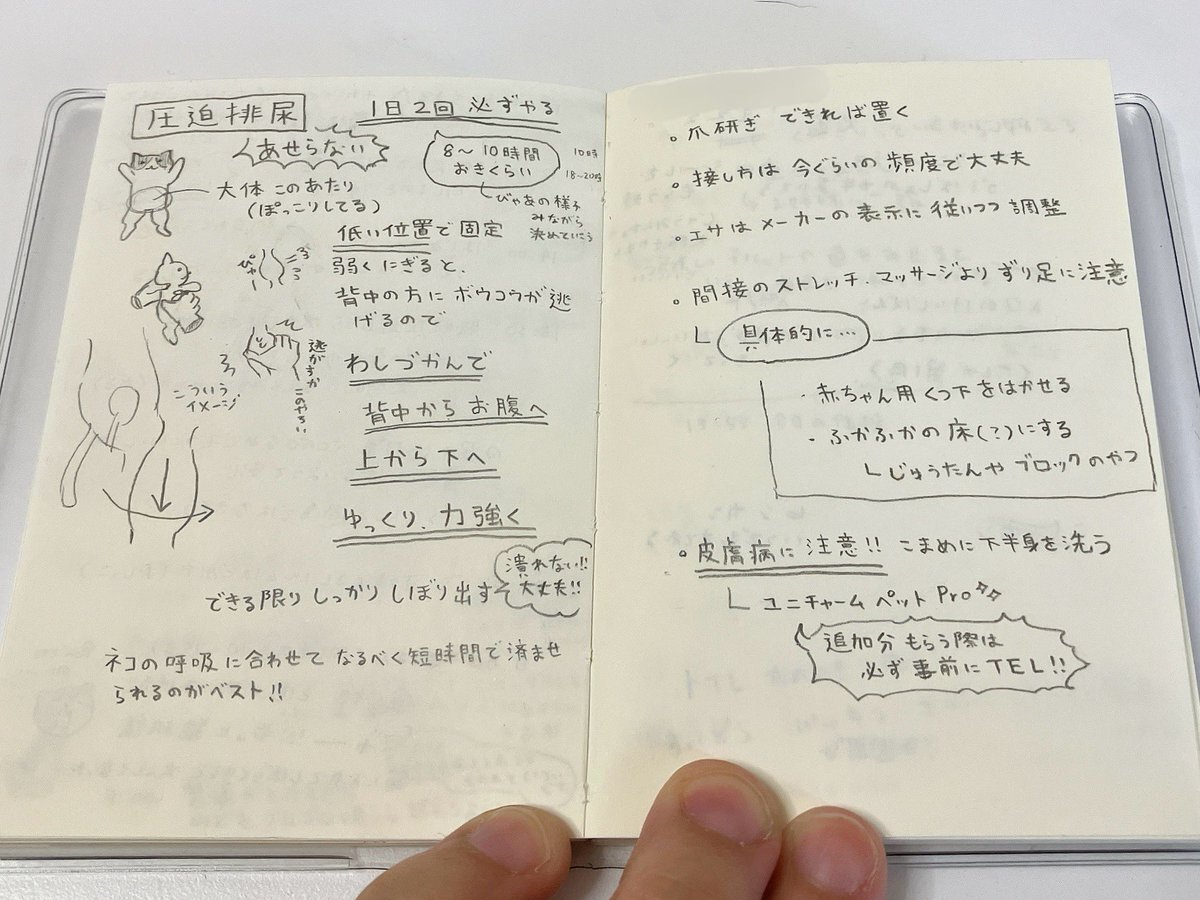 圧迫排尿
1日2回 必ずやる
あせらない
8〜10時間
おきくらい
10時
18〜20時
びゃあの様子
みながら
決めていこう
大体 このあたり
(ぽっこりしてる)
低い位置で固定
弱くにぎると、
背中の方に ボウコウが逃
げるので
わしづかんで
背中から お腹へ
上から下へ
ゆっくり、力強く
こういう
イメージ
逃がすか
このやろい
潰れない!!
大丈夫!!
できる限り しっかり しぼり出す
ネコの呼吸に合わせて なるべく短時間で済ませ
られるのがベスト!!
。爪研ぎ できれば置く
。接し方は 今ぐらいの 頻度で大丈夫
。エサはメーカーの表示に従いつつ 調整
。間接のストレッチ、マッサージより ずり足に注意
└ 具体的に…
・赤ちゃん用くつ下をはかせる
・ふかふかの床(?)にする
└じゅうたんや ブロックのやつ
。皮膚病に注意!! こまめに下半身を洗う
└ ユニチャーム ペット Pro
追加分 もらう際は
必ず事前に TEL!!